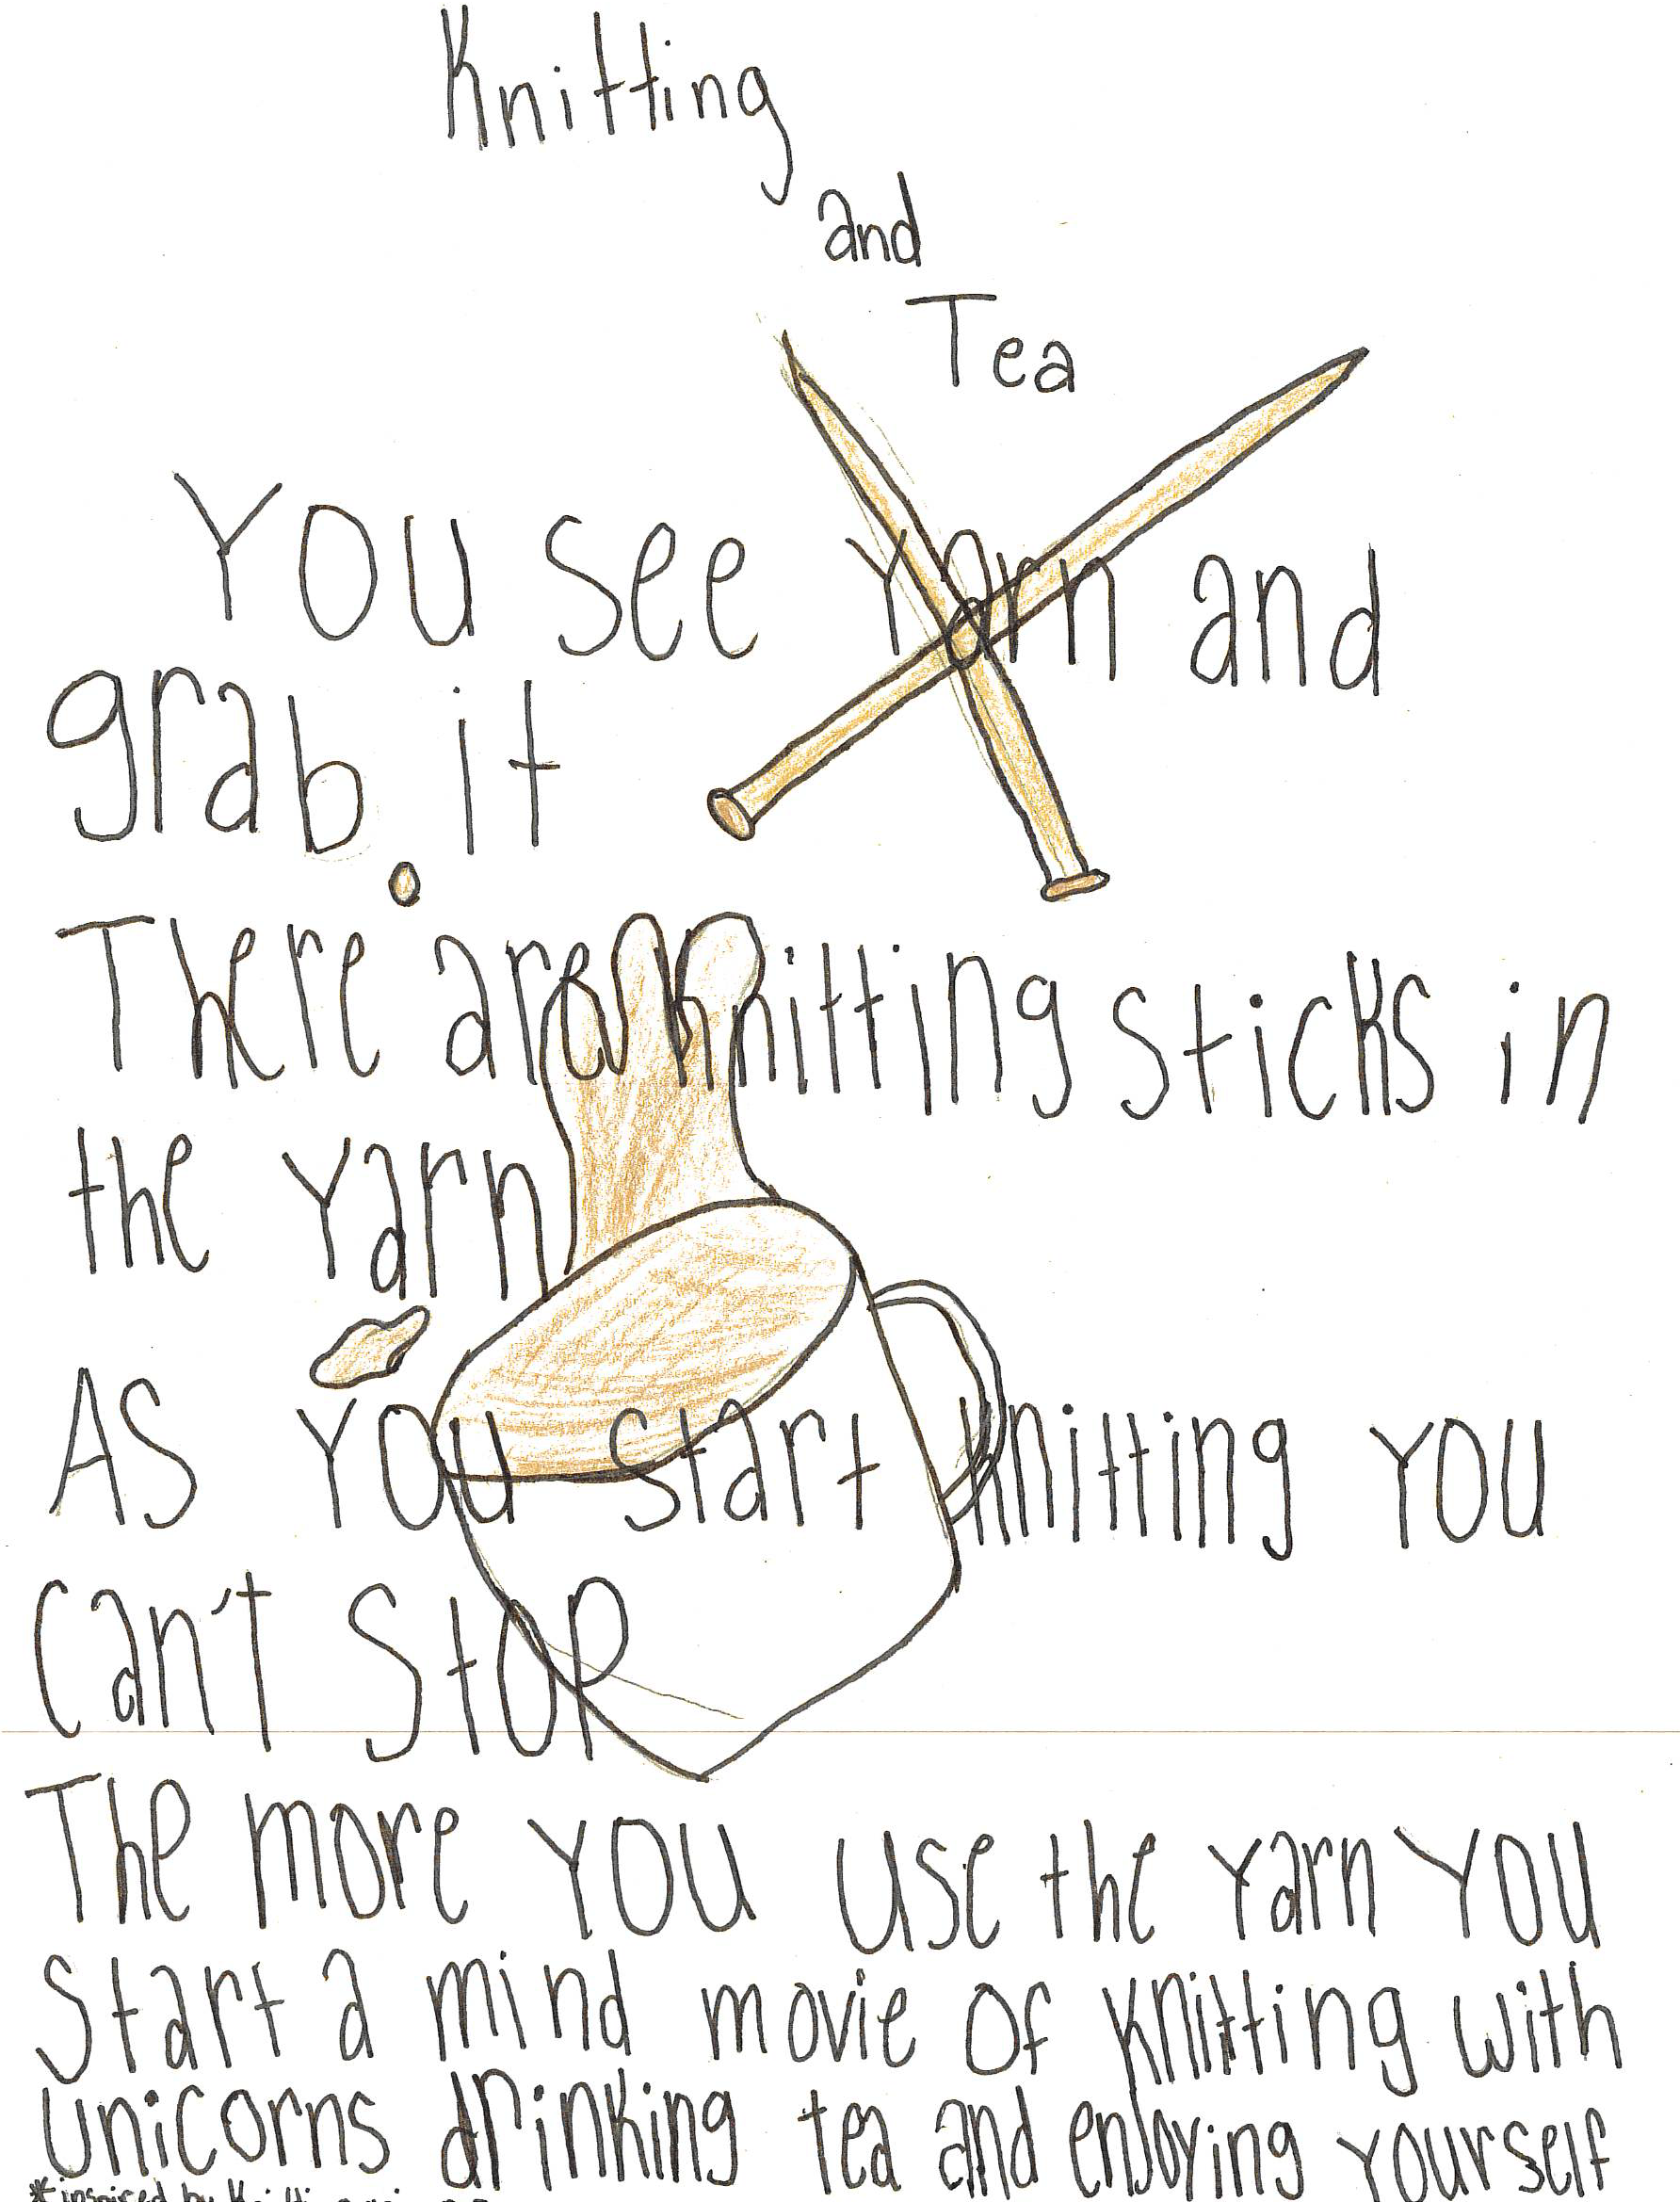 Knitting
and
Tea
You see Yarn and
grab it
There are knitting sticks in
the Yarn
As You start Knitting You
Can't Stop
The more You use the Yarn You
Start a mind movie of Knitting with
Unicorns drinking tea and enjoying yourself
*inspired by